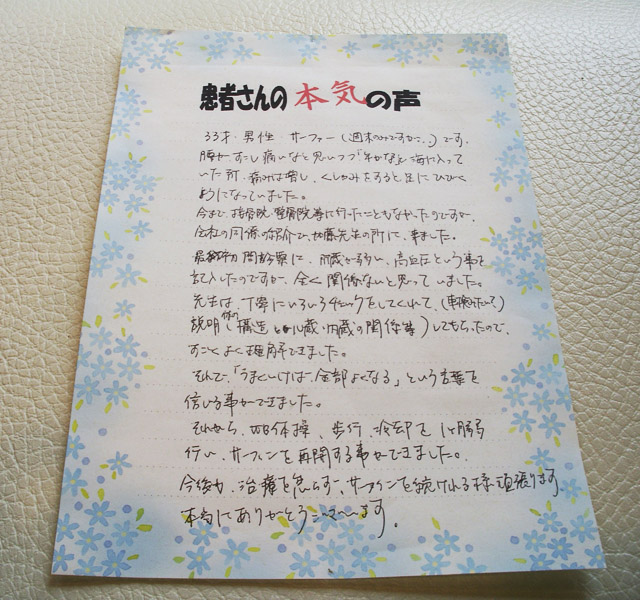 患者さんの本気の声
33才・男性・サーファー(週末のみですが…)です。
腰が少し痛いなと思いつつ「年かな」と海に入って
いた所、痛みは増し、くしゃみをすると足にひびく
ようになっていました。
今まで接骨院、整骨院等に行ったこともなかったのですが、
会社の同僚の紹介で、加藤先生の所に、来ました。
問診票に、何蔵が多い、高血圧という事を
記入したのですが、全く関係ないと思っていました。
先生は、丁寧にいろいろチェックをしてくれて、
説明(体の構造と心臓・内蔵の関係等)してもらったので、
すごくよく理解できました。
それで、「うまくいけば全部よくなる」という言葉を
信じる事ができました。
それから、体操、歩行、冷却を1ヶ月弱
行い、サーフィンを再開する事ができました。
今後も、治療を焦らず、サーフィンを続けれる様頑張ります
本当にありがとうございます。